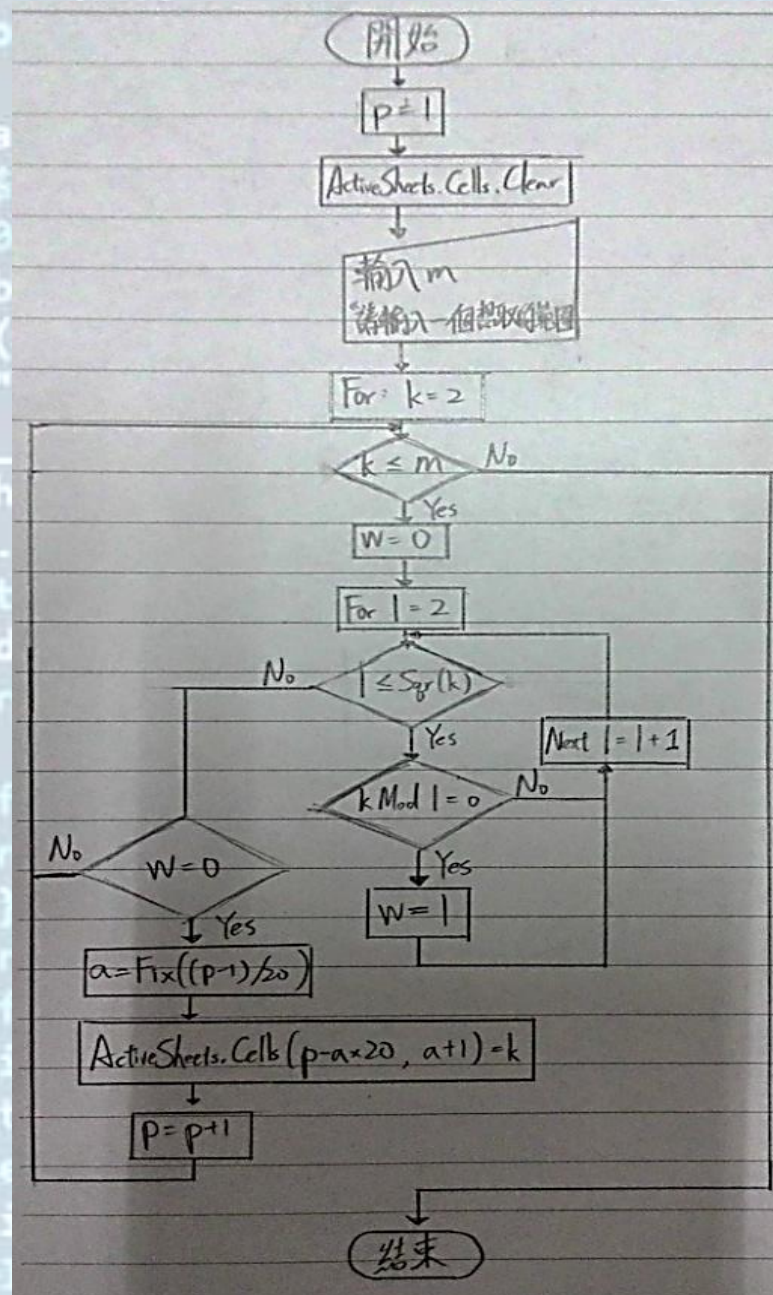 開始
p=1
ActiveSheets.Cells.Clear
輸入 m
"請輸入一個想取的範圍
For: k=2
k ≤ m
No
Yes
W=0
For l=2
l ≤ Sqr(k)
No
Yes
Next l=l+1
k Mod l=0
No
Yes
W=1
W=0
No
Yes
a=Fix((p-1)/20)
ActiveSheets.Cells(p-a×20, a+1)=k
P=p+1
結束